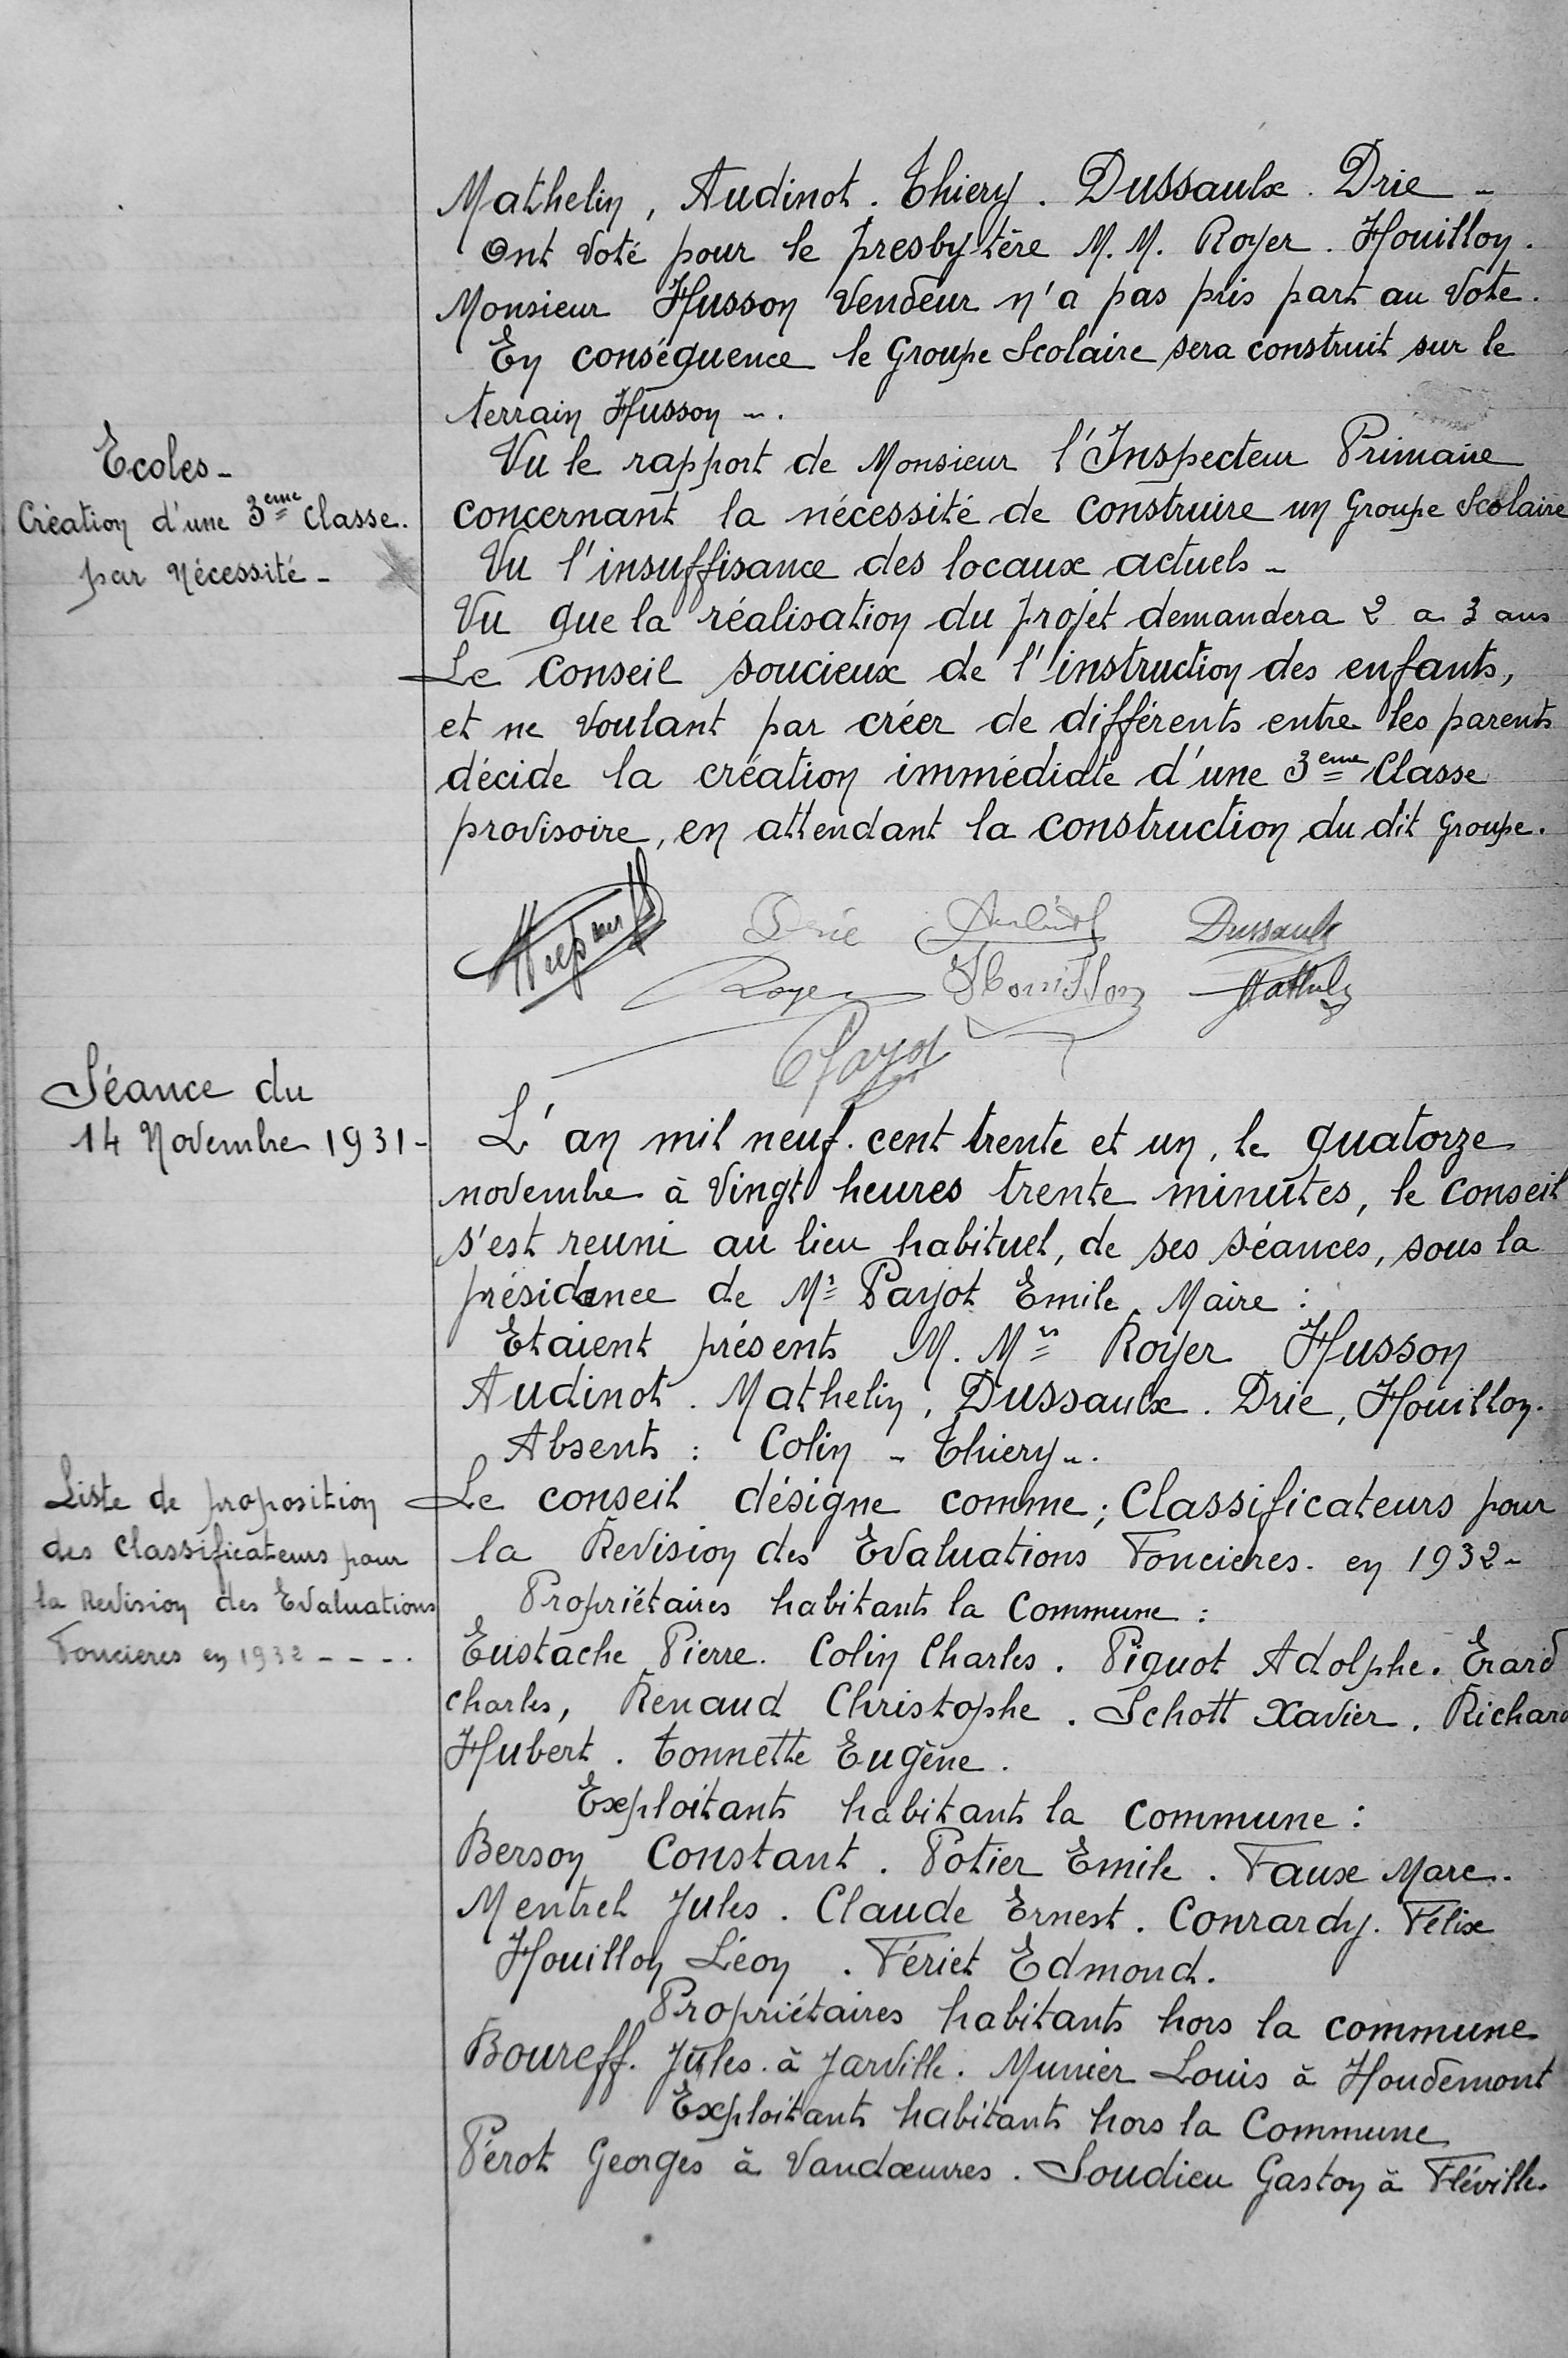 Mathelin, Audinot. Thiery. Dussaulx. Drie -
Ont voté pour le presbytère M. M. Royer. Houillon.
Monsieur Husson Vendeur n'a pas pris part au vote.
En conséquence le Groupe Scolaire sera construit sur le
terrain Husson -.
Ecoles -
Création d'une 3eme Classe.
par Nécessité -
Vu le rapport de Monsieur l'Inspecteur Primaire
concernant la nécessité de construire un Groupe Scolaire
Vu l'insuffisance des locaux actuels -
Vu que la réalisation du projet demandera 2 a 3 ans
Le Conseil soucieux de l'instruction des enfants,
et ne voulant par créer de différents entre les parents
décide la création immédiate d'une 3eme Classe
provisoire, en attendant la construction du dit Groupe.
Drie Audinot Dussaulx
Royer Houillon Mathelin
Payot
Séance du
14 Novembre 1931 -
L'an mil neuf. cent trente et un, le quatorze
novembre à vingt heures trente minutes, le conseil
s'est reuni au lieu habituel, de ses séances, sous la
présidence de Mr Payot Emile Maire :
Etaient présents M. Mrs Royer Husson
Audinot. Mathelin, Dussaulx. Drie, Houillon.
Absents : Colin - Thiery -.
Liste de proposition
des Classificateurs pour
la Revision des Evaluations
Foncieres en 1932 - - - .
Le conseil désigne comme ; Classificateurs pour
la Revision des Evaluations Foncieres. en 1932 -
Propriétaires habitants la Commune :
Eustache Pierre. Colin Charles. Piquot Adolphe. Erard
Charles, Renaud Christophe. Schott Xavier. Richard
Hubert. Tonnette Eugène.
Exploitants habitants la Commune :
Berson Constant. Potier Emile. Faux Marc.
Mentrel Jules. Claude Ernest. Conrardy. Félix
Houillon Léon. Fériet Edmond.
Propriétaires habitants hors la commune
Boureff. Jules. à Jarville. Munier Louis à Houdemont
Exploitants habitants hors la Commune
Pérot Georges à Vandœuvres. Soudieu Gaston à Fléville.